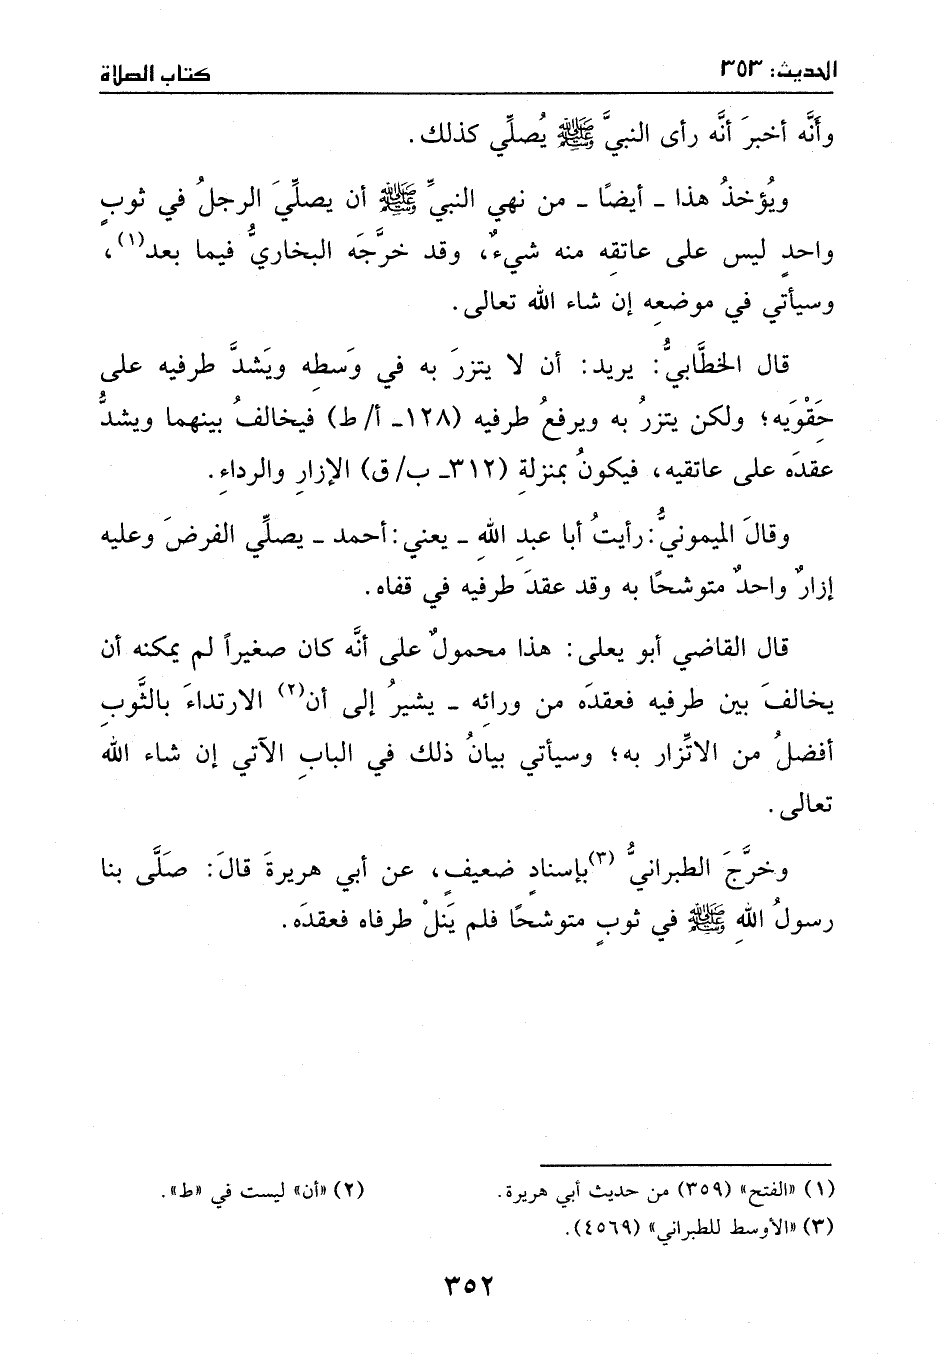 الحديث: ٣٥٣ كتاب الصلاة
وأنَّه أخبرَ أنَّه رأى النبيَّ ﷺ يُصلِّي كذلك.
ويُؤخذُ هذا ـ أيضًا ـ من نهي النبيِّ ﷺ أن يصلِّيَ الرجلُ في ثوبٍ
واحدٍ ليس على عاتقِه منه شيءٌ، وقد خرَّجَه البخاريُّ فيما بعد(١)،
وسيأتي في موضعِه إن شاء الله تعالى.
قال الخطَّابيُّ: يريد: أن لا يتزرَ به في وَسطِه ويَشدَّ طرفيه على
حَقْوَيه؛ ولكن يتزرُ به ويرفعُ طرفيه (١٢٨ـ أ/ ط) فيخالفُ بينهما ويشدُّ
عقدَه على عاتقيه، فيكونُ بمنزلةِ (٣١٢ـ ب/ ق) الإزارِ والرداءِ.
وقالَ الميمونيُّ: رأيتُ أبا عبدِ اللهِ ـ يعني: أحمد ـ يصلِّي الفرضَ وعليه
إزارٌ واحدٌ متوشحًا به وقد عقدَ طرفيه في قفاه.
قال القاضي أبو يعلى: هذا محمولٌ على أنَّه كان صغيراً لم يمكنه أن
يخالفَ بين طرفيه فعقدَه من ورائِه ـ يشيرُ إلى أن(٢) الارتداءَ بالثَّوبِ
أفضلُ من الاتِّزار به؛ وسيأتي بيانُ ذلك في البابِ الآتي إن شاء الله
تعالى.
وخرَّجَ الطبرانيُّ(٣) بإسنادٍ ضعيفٍ، عن أبي هريرةَ قالَ: صَلَّى بنا
رسولُ اللهِ ﷺ في ثوبٍ متوشحًا فلم يَنلْ طرفاه فعقدَه.
(١) «الفتح» (٣٥٩) من حديث أبي هريرة. (٢) «أن» ليست في «ط».
(٣) «الأوسط للطبراني» (٤٥٦٩).
٣٥٢